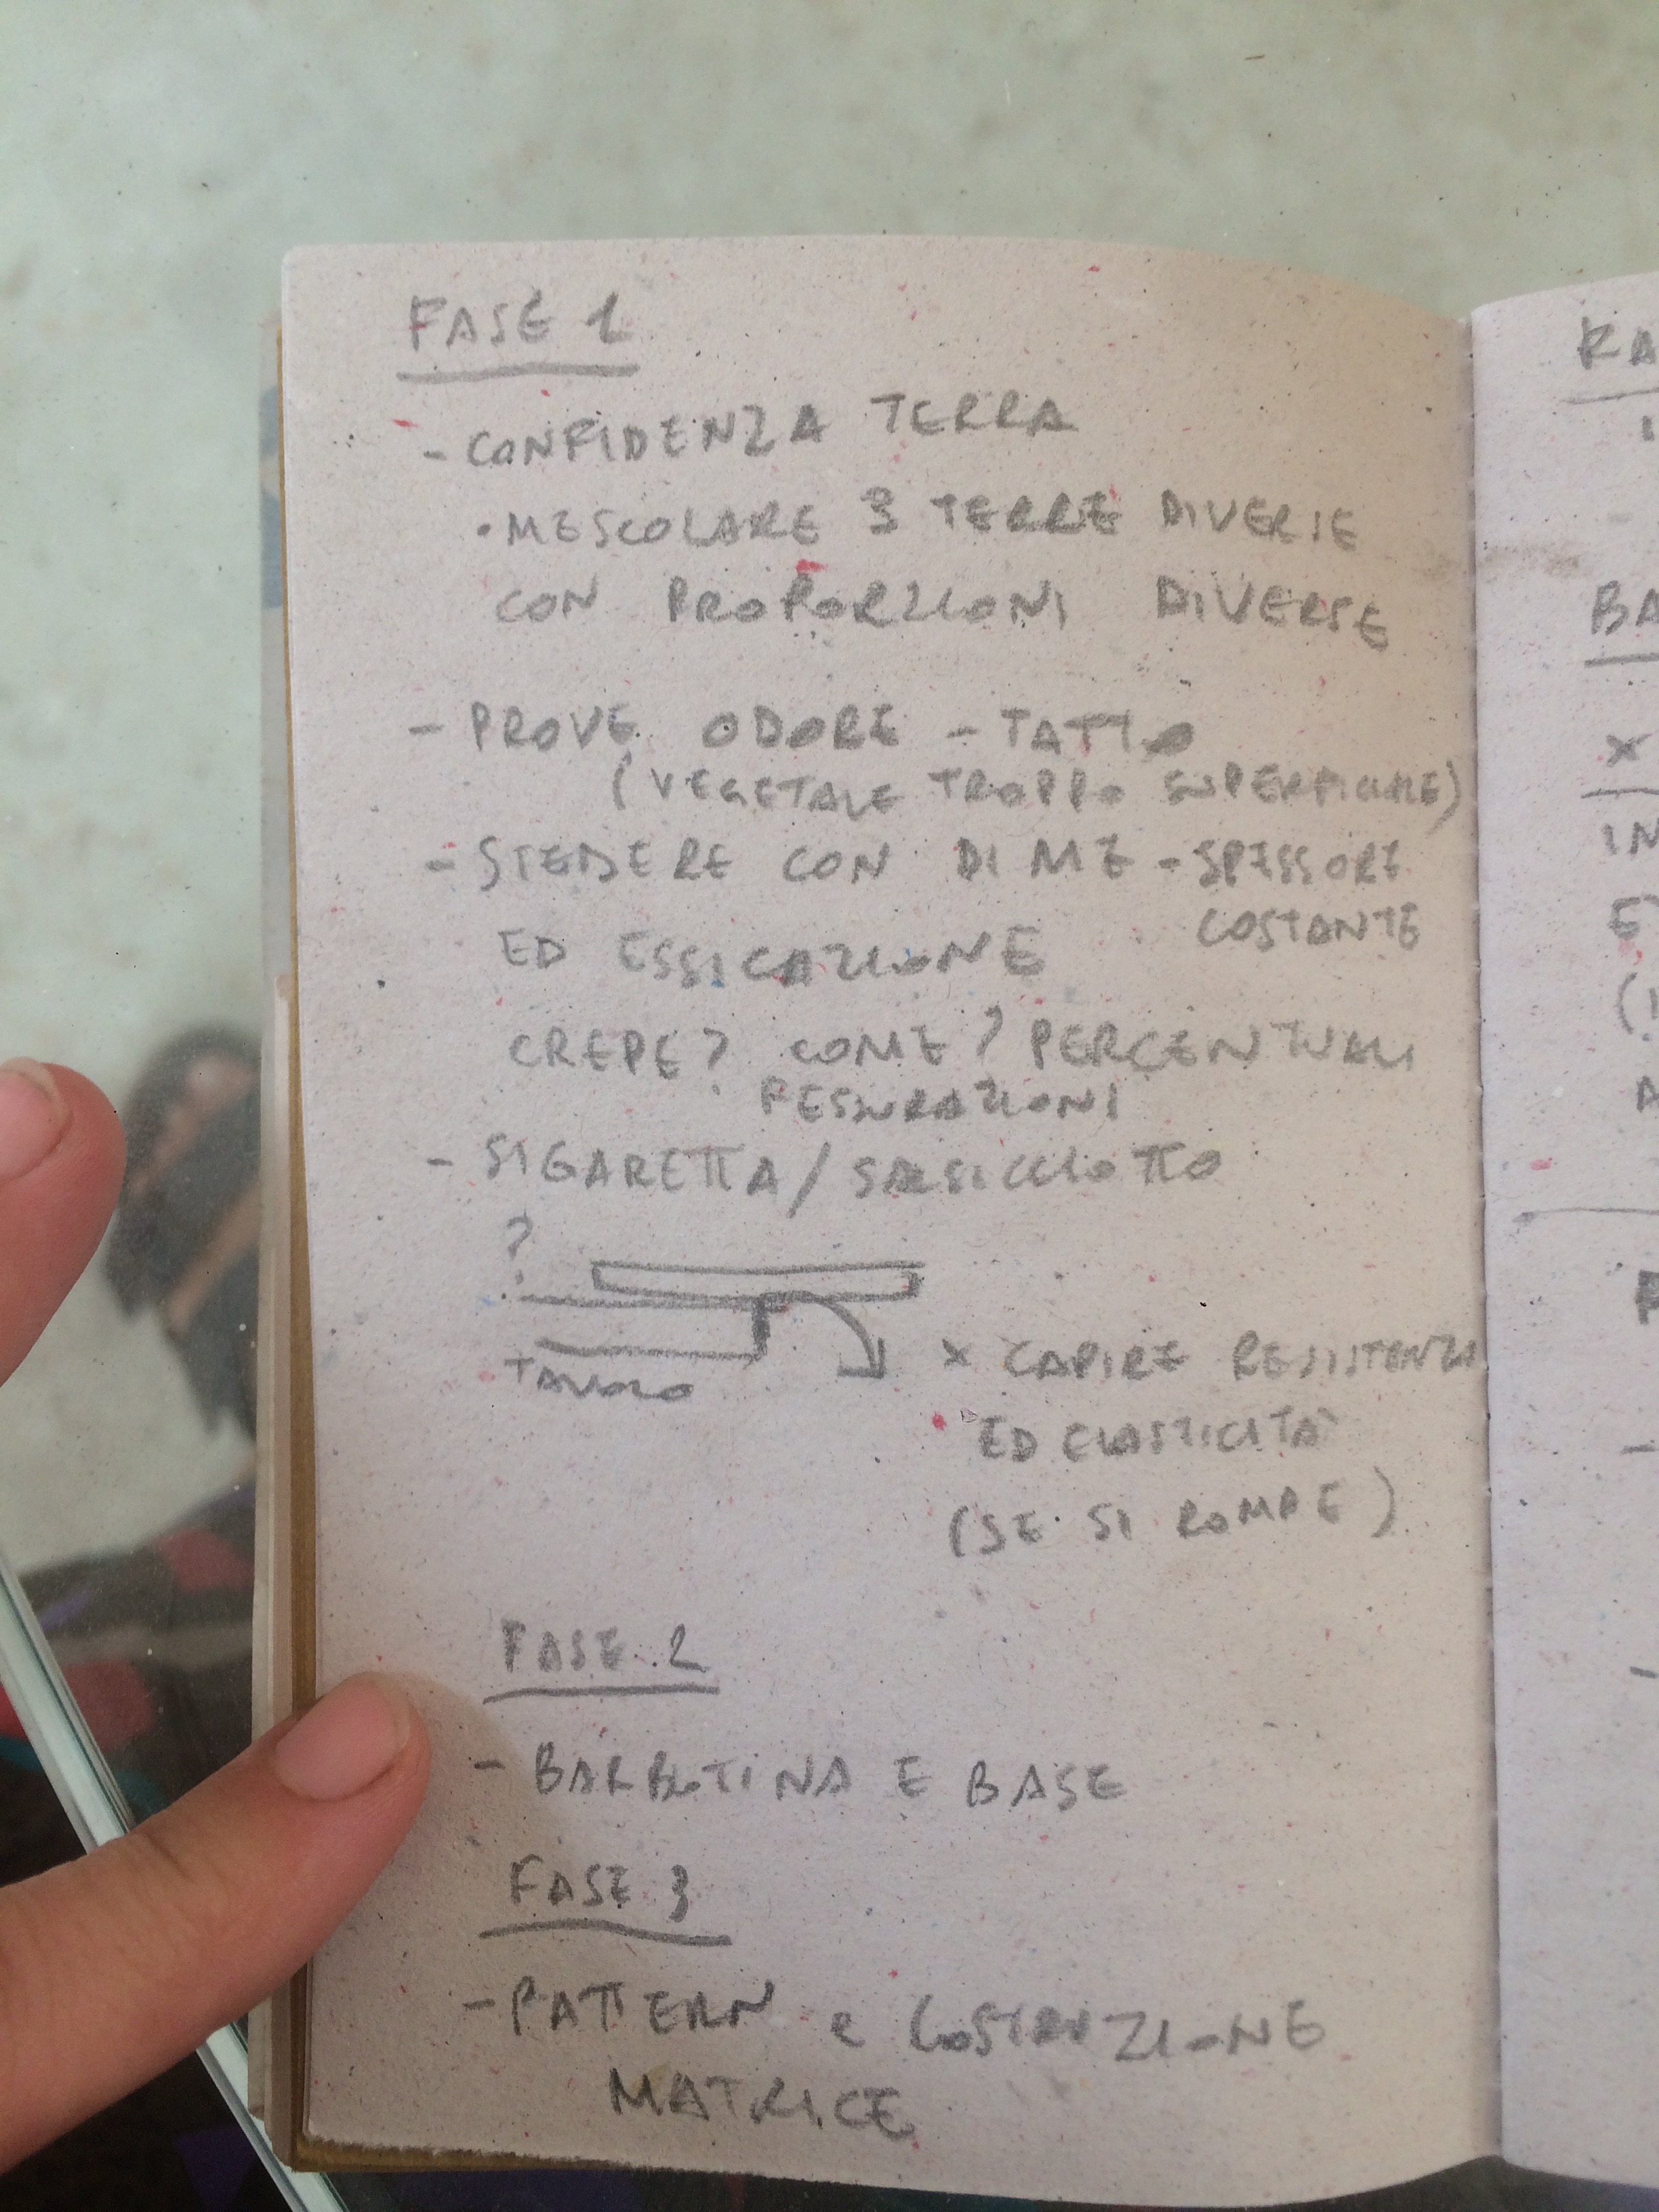 FASE 1
- CONFIDENZA TERRA
• MESCOLARE 3 TERRE DIVERSE
CON PROPORZIONI DIVERSE
- PROVE ODORE - TATTO
(VEGETALE TROPPO SUPERFICIALE)
- STENDERE CON DIME - SPESSORE
COSTANTE
ED ESSICAZIONE
CREPE? COME? PERCENTUALI
FESSURAZIONI
- SIGARETTA / SALSICCIOTTO
?
TAVOLO
× CAPIRE RESISTENZA
ED ELASTICITÀ
(SE SI ROMPE)
FASE 2
- BARBOTINA E BASE
FASE 3
- PATTERN e COSTRUZIONE
MATRICE
RA
BA
×
IN